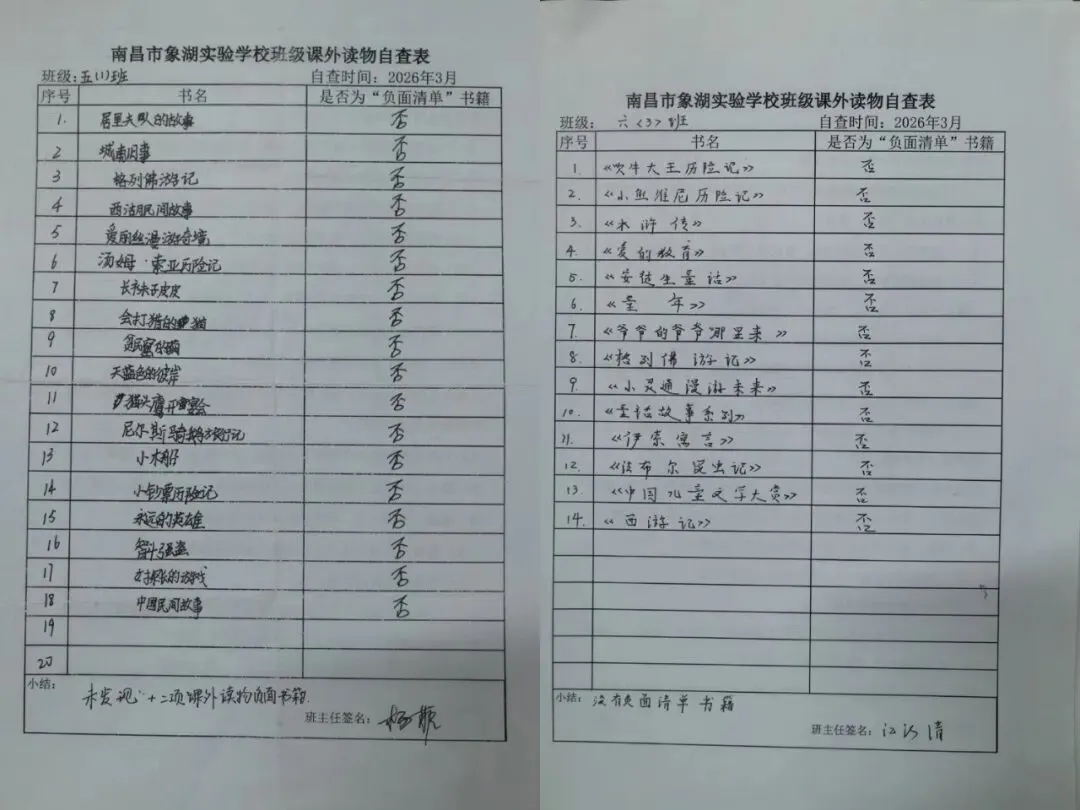 南昌市象湖实验学校班级课外读物自查表
班级:五(1)班 自查时间：2026年3月
序号 书名 是否为“负面清单”书籍
1. 居里夫人的故事 否
2 城南旧事 否
3 格列佛游记 否
4 民间故事 否
5 爱丽丝漫游奇境 否
6 汤姆·索亚历险记 否
7 长袜子皮皮 否
8 会打猎的猫 否
9 否
10 天蓝色的彼岸 否
11 猫头鹰开宴会 否
12 尼尔斯骑鹅旅行记 否
13 小木船 否
14 小钞票历险记 否
15 永远的英雄 否
16 智斗强盗 否
17 的游戏 否
18 中国民间故事 否
19
20
小结：
未发现“十二项课外读物负面书籍.
班主任签名：杨
南昌市象湖实验学校班级课外读物自查表
班级： 六〈3〉班 自查时间：2026年3月
序号 书名 是否为“负面清单”书籍
1. 《吹牛大王历险记》 否
2. 《小鱼维尼历险记》 否
3. 《水浒传》 否
4. 《爱的教育》 否
5. 《安徒生童话》 否
6. 《童年》 否
7. 《爷爷的爷爷哪里来》 否
8. 《格列佛游记》 否
9 《小灵通漫游未来》 否
10. 《童话故事系列》 否
11. 《伊索寓言》 否
12. 《法布尔昆虫记》 否
13. 《中国儿童文学大赏》 否
14. 《西游记》 否
小结： 没有负面清单书籍
班主任签名： 清